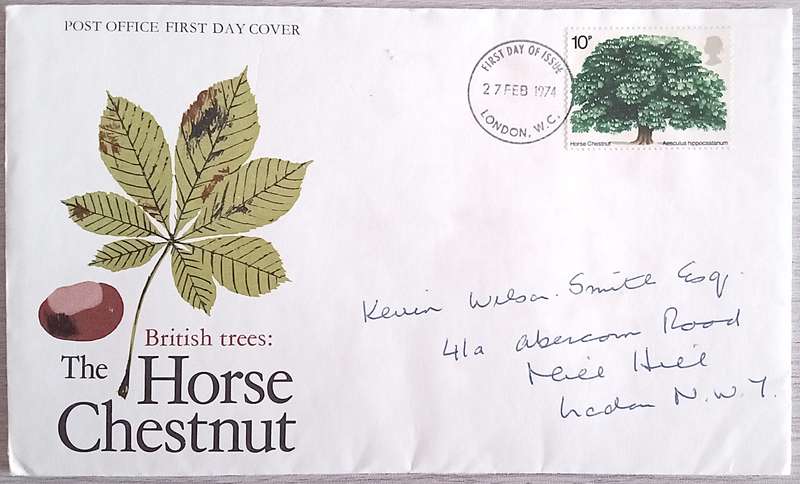 POST OFFICE FIRST DAY COVER
FIRST DAY OF ISSUE
27 FEB 1974
LONDON, W.C.
10P
Horse Chestnut Aesculus hippocastanum
Kevin Wilson-Smith Esq.
41a Abercorn Road
Mill Hill
London N.W.7.
British trees:
The Horse
Chestnut